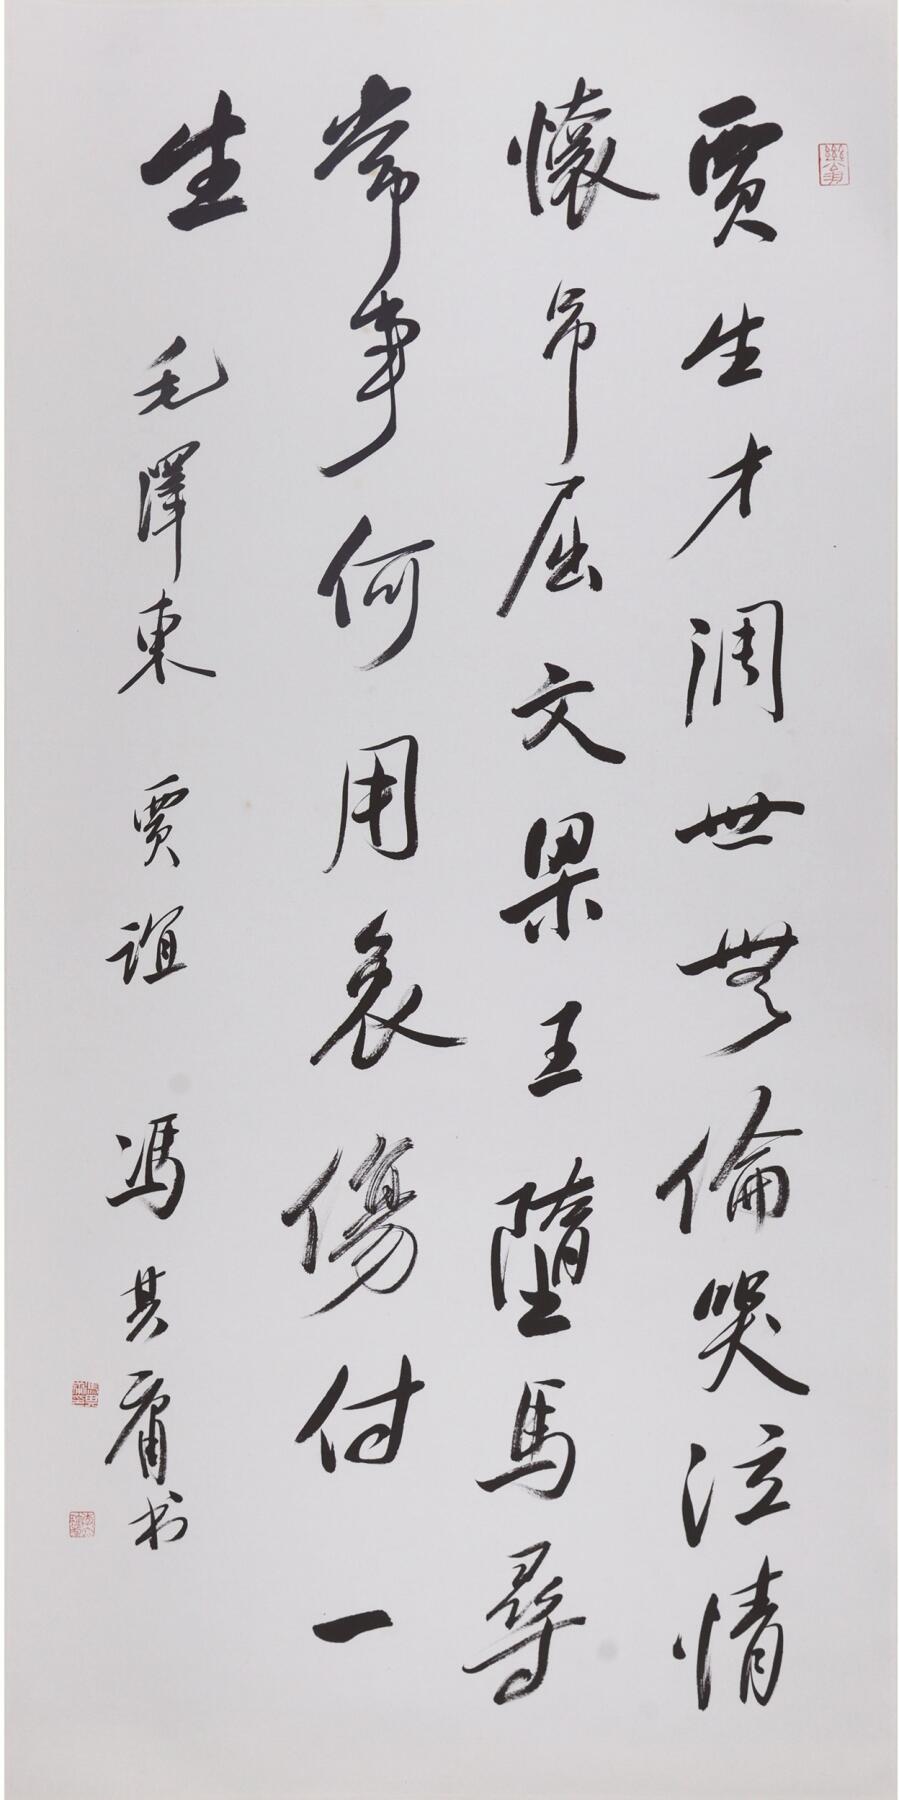 賈生才調世無倫哭泣情
懷吊屈文梁王墮馬尋
常事何用哀傷付一
生 毛澤東 賈誼 馮其庸书